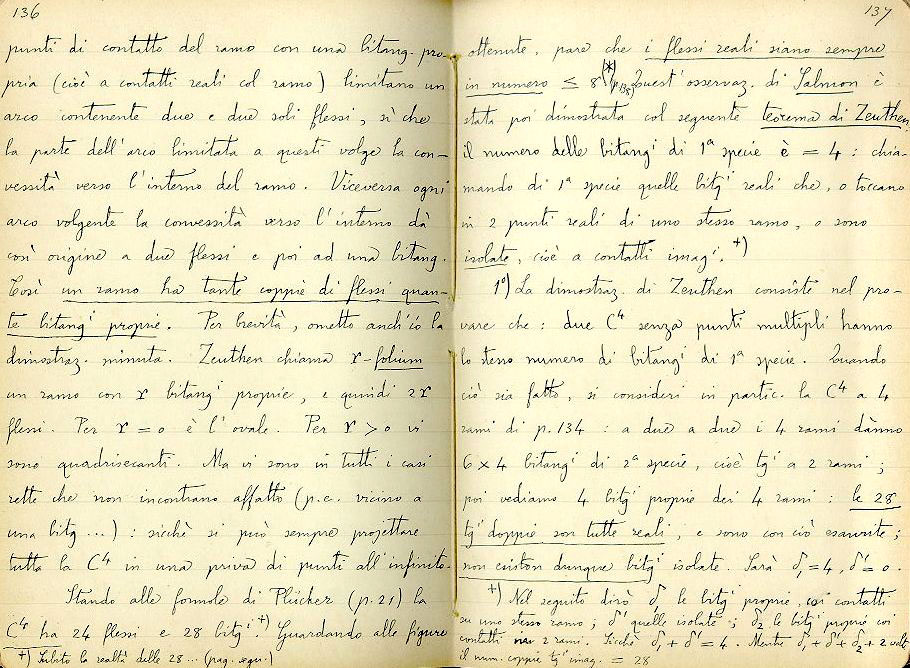 136
punti di contatto del ramo con una bitang. pro-
pria (cioè a contatti reali col ramo) limitano un
arco contenente due e due soli flessi, sì che
la parte dell'arco limitata a questi volge la con-
vessità verso l'interno del ramo. Viceversa ogni
arco volgente la convessità verso l'interno dà
così origine a due flessi e poi ad una bitang.
Così un ramo ha tante coppie di flessi quan-
te bitangⁱ proprie. Per brevità, ometto anch'io la
dimostraz. minuta. Zeuthen chiama r-folium
un ramo con r bitangⁱ proprie, e quindi 2r
flessi. Per r = 0 è l'ovale. Per r > 0 vi
sono quadrisecanti. Ma vi sono in tutti i casi
rette che non incontrano affatto (p.e. vicino a
una bitg ...) : sicchè si può sempre projettare
tutta la C⁴ in una priva di punti all'infinito.
Stando alle formole di Plücker (p.21) la
C⁴ ha 24 flessi e 28 bitgⁱ.⁺) Guardando alle figure
+) Subito la realtà delle 28 ... (pag. segu.)
137
ottenute, pare che i flessi reali siano sempre
in numero ≤ 8 (*) (p.138) Quest'osservaz. di Salmon è
stata poi dimostrata col seguente teorema di Zeuthen:
il numero delle bitangⁱ di 1ª specie è = 4 : chia-
mando di 1ª specie quelle bitgⁱ reali che, o toccano
in 2 punti reali di uno stesso ramo, o sono
isolate, cioè a contatti imagⁱ.⁺)
1º) La dimostraz. di Zeuthen consiste nel pro-
vare che : due C⁴ senza punti multipli hanno
lo stesso numero di bitangⁱ di 1ª specie. Quando
ciò sia fatto, si consideri in partic. la C⁴ a 4
rami di p.134 : a due a due i 4 rami dànno
6 × 4 bitangⁱ di 2ª specie, cioè tgⁱ a 2 rami ;
poi vediamo 4 bitgⁱ proprie dei 4 rami : le 28
tgⁱ doppie son tutte reali, e sono con ciò esaurite ;
non esiston dunque bitgⁱ isolate. Sarà δ₁ = 4, δ' = 0.
+) Nel seguito dirò δ₁ le bitgⁱ proprie, coi contatti
su uno stesso ramo ; δ' quelle isolate ; δ₂ le bitgⁱ proprie coi
contatti su 2 rami. Sicchè δ₁ + δ' = 4. Mentre δ₁ + δ' + δ₂ + 2 volte
il num. coppie tgⁱ imag. = 28